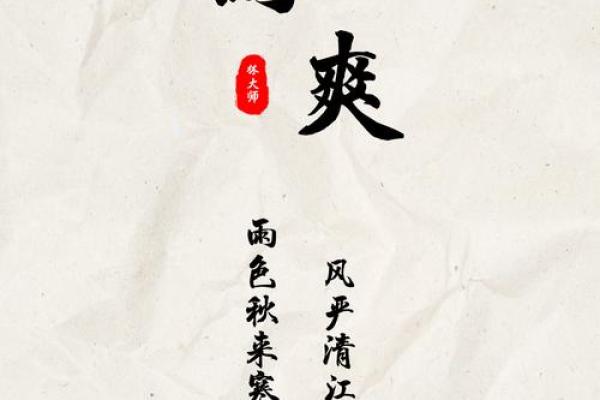 爽
大师
雨色秋来寒
风严清江